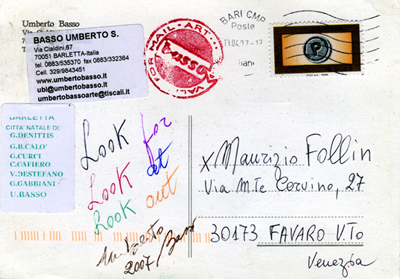 Umberto Basso
BASSO UMBERTO S.
Via Cialdini,67
70051 BARLETTA-Italia
tel. 0883/535370 fax 0883/332364
Cell. 329/9843451
www.umbertobasso.it
ubi@umbertobasso.it
umbertobassoarte@tiscali.it
MAIL-ART
BASSO
BARI CMP
Poste
P
BARLETTA
CITTA' NATALE DE
G.DENITTIS
G.B.CALO'
G.CURCI
C.CAFIERO
V.DESTEFANO
G.GABBIANI
U.BASSO
Look for
Look at
Look out
Umberto Basso
2007
x Maurizio Follin
Via M.te Cervino, 27
30173 FAVARO V.TO
Venezia